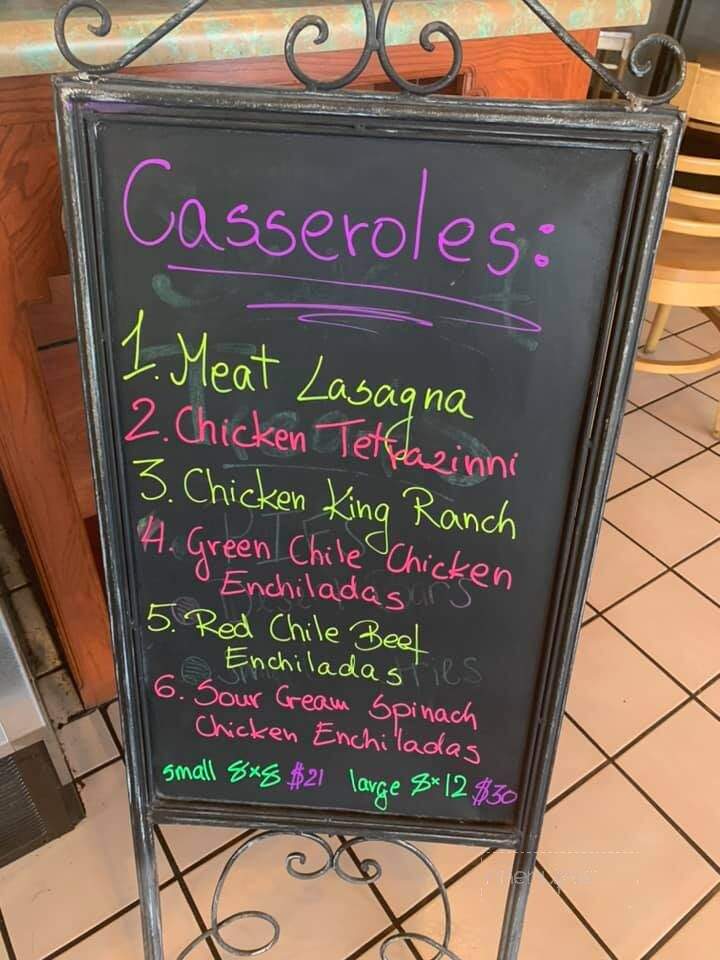 Casseroles:
1. Meat Lasagna
2. Chicken Tetrazinni
3. Chicken King Ranch
4. Green Chile Chicken
Enchiladas
5. Red Chile Beef
Enchiladas
6. Sour Cream Spinach
Chicken Enchiladas
small 8x8 $21 large 8x12 $30